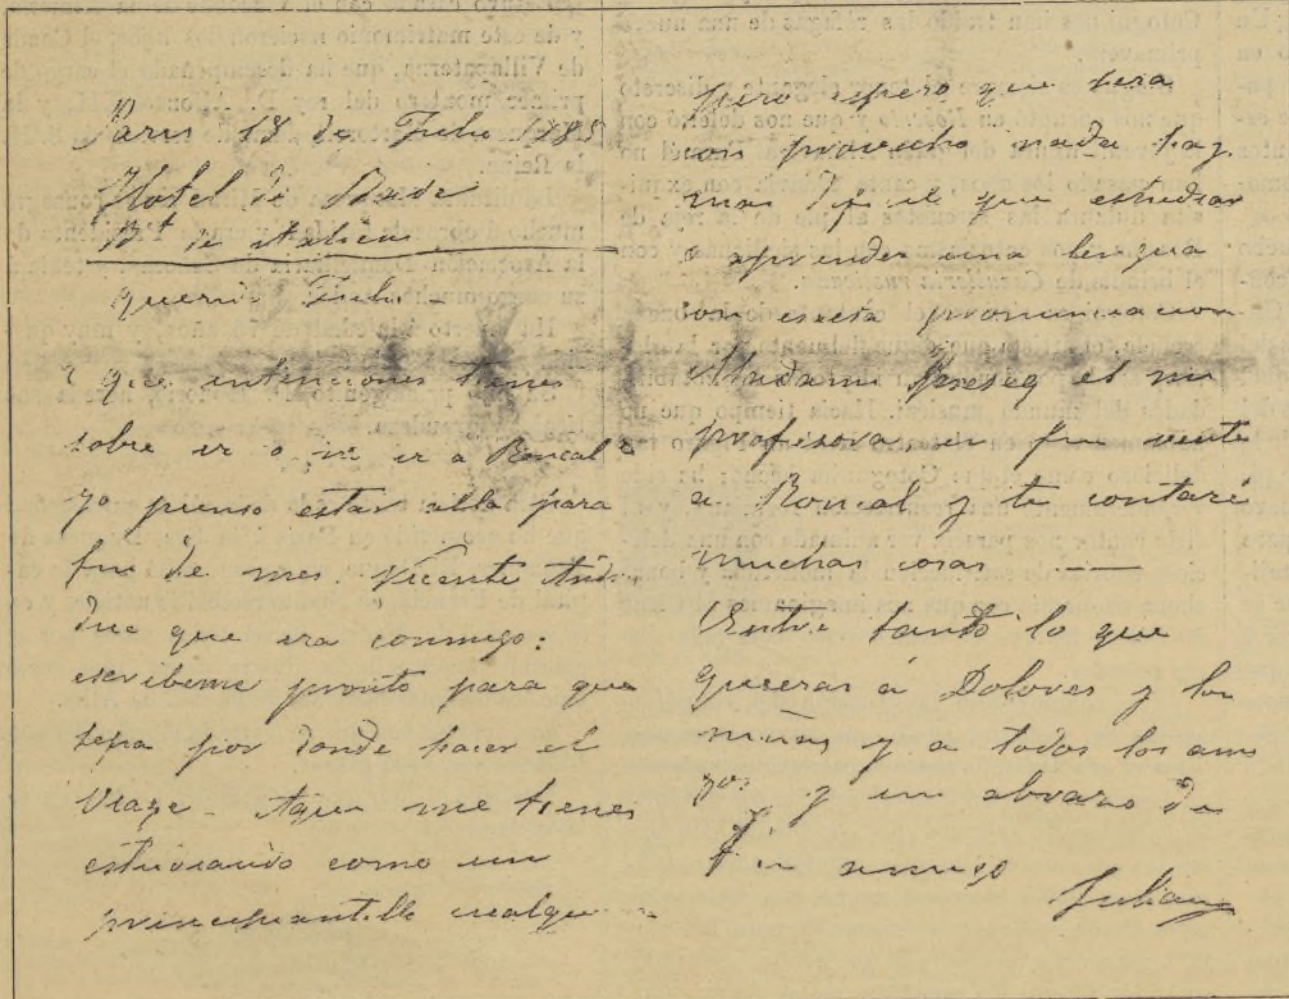 Paris 18 de Julio 188
Hotel de Bade
Bt de italiens
querido Julio
¿que intenciones tienes
sobre ir o no ir a Roncal?
yo pienso estar alla para
fin de mes. Vicente
dice que ira conmigo:
escribeme pronto para que
sepa por donde hacer el
viage - Aqui me tienes
estudiando como un
principiantillo cualqu
pero espero que sera
con provecho nada hay
mas dificil que estudiar
o aprender una lengua
con esa pronunciacion
Madame es mi
profesora, en fin vente
a Roncal y te contaré
muchas cosas —
Entre tanto lo que
quieras á Dolores y los
niños y a todos los ami
gos y un abrazo de
tu amigo
Julian